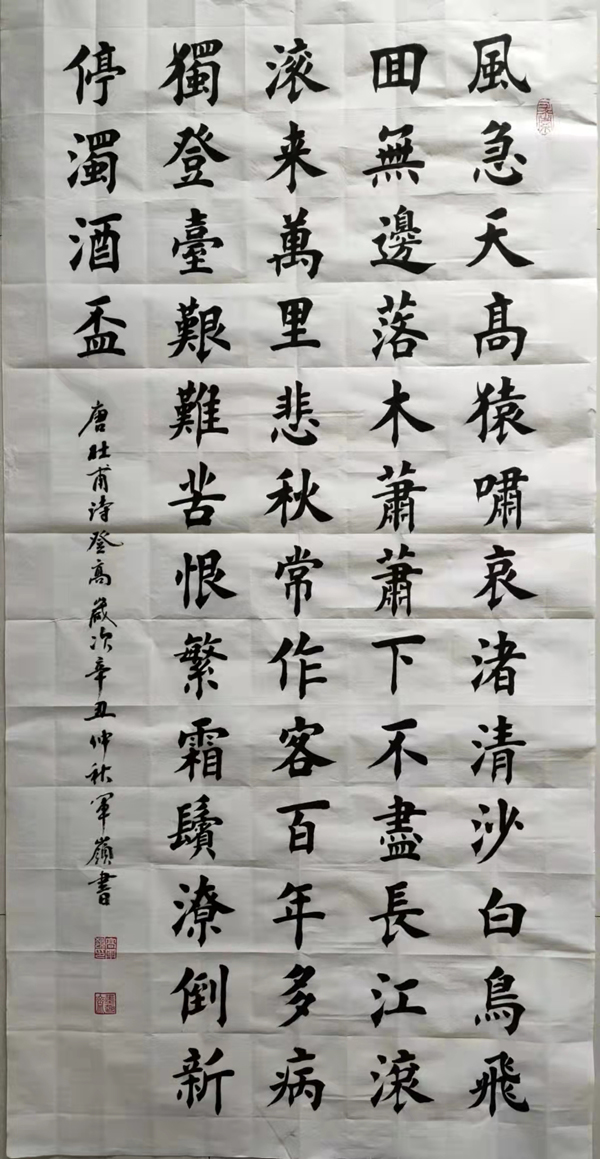 風急天高猿嘯哀渚清沙白鳥飛
回無邊落木蕭蕭下不盡長江滾
滾来萬里悲秋常作客百年多病
獨登臺艱難苦恨繁霜鬢潦倒新
停濁酒盃
唐杜甫詩登高歲次辛丑仲秋軍嶺書